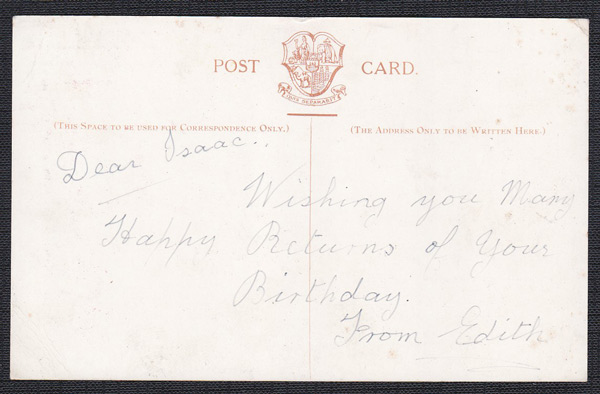 POST CARD.
(THIS SPACE TO BE USED FOR CORRESPONDENCE ONLY.) (THE ADDRESS ONLY TO BE WRITTEN HERE.)
Dear Isaac..
Wishing you Many
Happy Returns of Your
Birthday.
From Edith